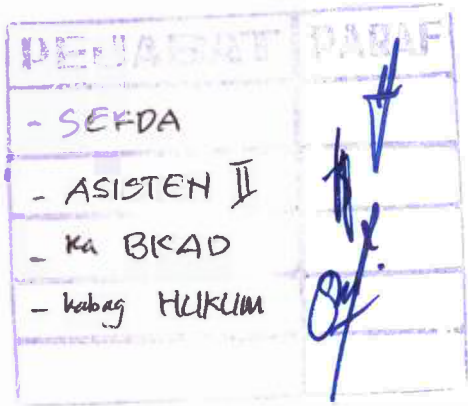 PEJABAT PARAF
- SEKDA
- ASISTEN II
- Ka BKAD
- kabag HUKUM